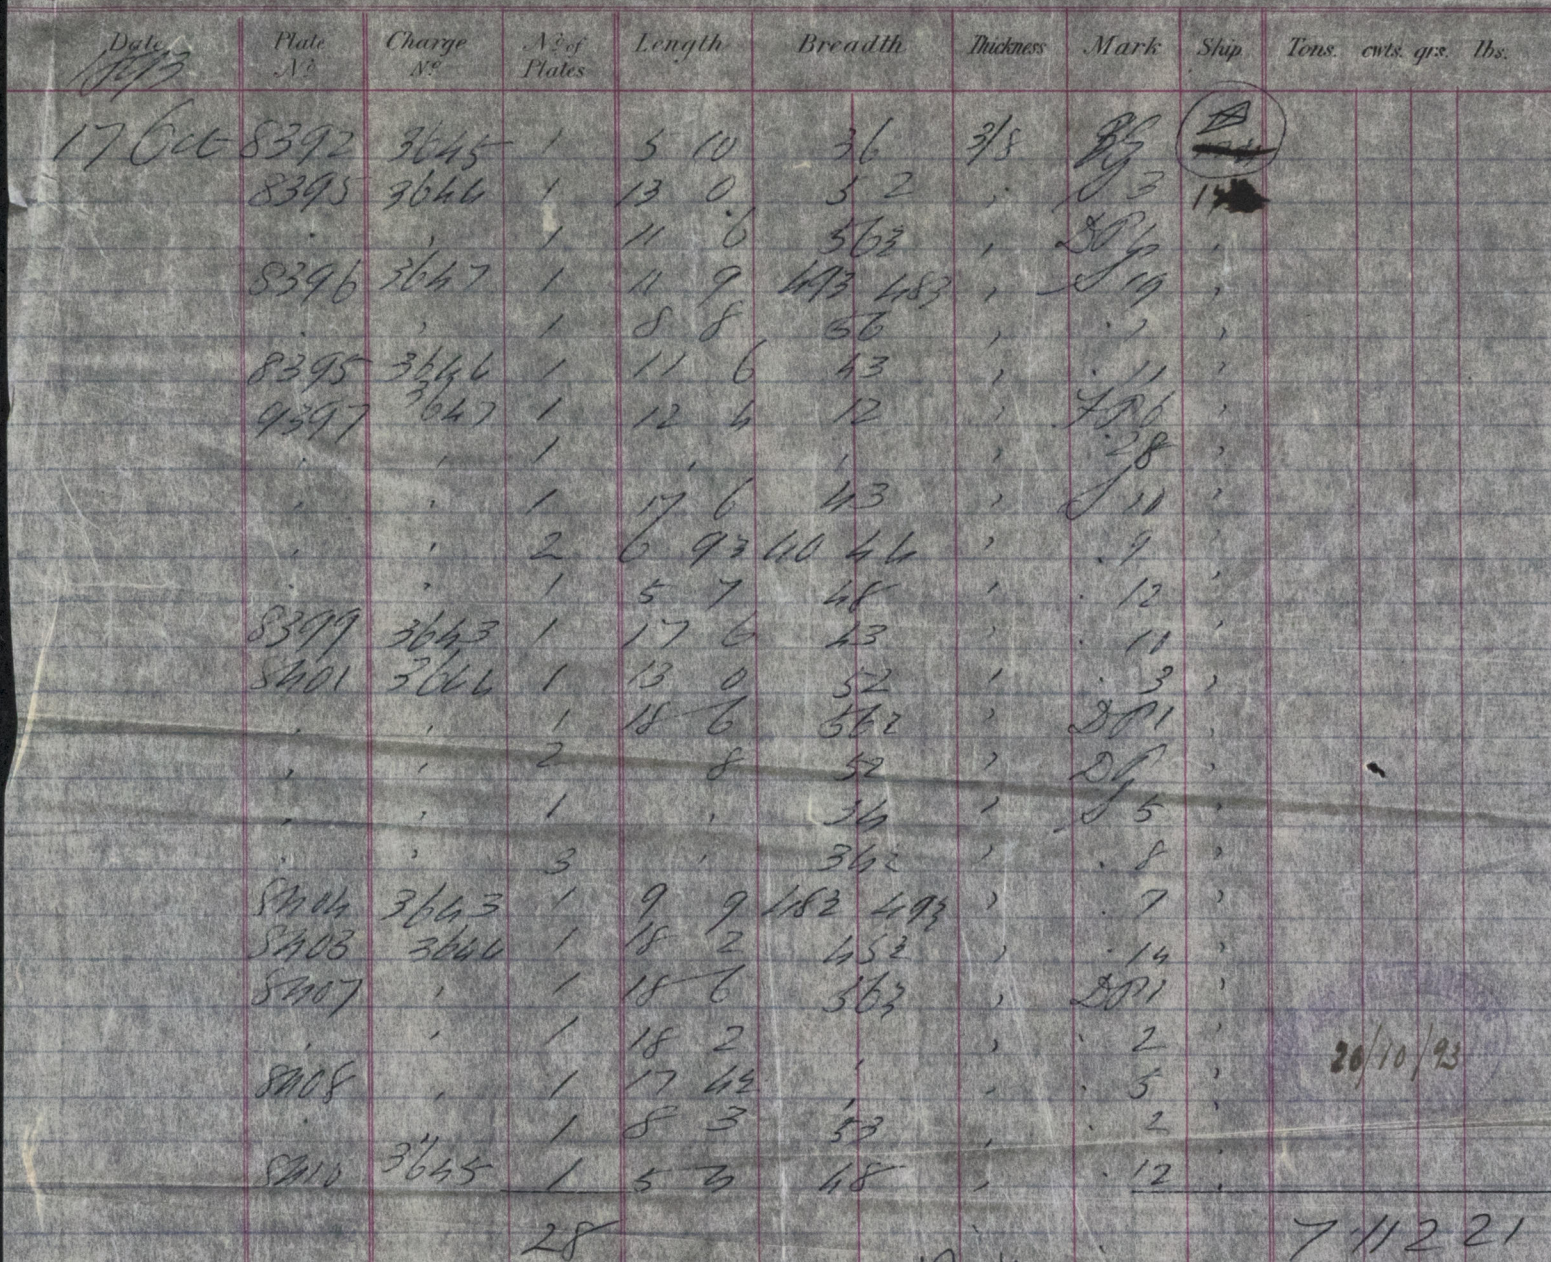 Date Plate Charge No of Length Breadth Thickness Mark Ship Tons. cwts. qrs. lbs.
No No Plates
17 Oct 8392 3645 1 5 10 36 3/8
8395 3644 1 13 0 52 " S 3
" " 1 11 6 563 "
8396 3647 1 11 9 493 483 " S 19 "
" " 1 8 8 56 " " 7 "
8395 3646 1 11 6 43 " " 11 "
9397 3647 1 12 4 12 " "
" " 1 " " " 28 "
" " 1 17 6 43 " S 11 "
" " 2 6 93 40 44 " " 9 "
" " 1 5 7 48 " " 12 "
8399 3643 1 17 6 43 " " 11 "
8401 3644 1 13 0 52 " " 3 "
" " 1 18 6 562 " DP1 "
" " 2 8 52 " "
" " 1 " 34 " S 5 "
" " 3 " 342 " " 8 "
8404 3643 1 9 9 483 493 " " 7 "
8403 3644 1 18 2 452 " " 14 "
8407 " 1 18 6 563 " DP1 "
" " 1 18 2 " " " 2 "
8408 " 1 17 42 " " " 5 "
" " 1 8 3 53 " " 2 "
8410 3645 1 5 48 " " 12 "
20/10/93
28 7 11 2 21